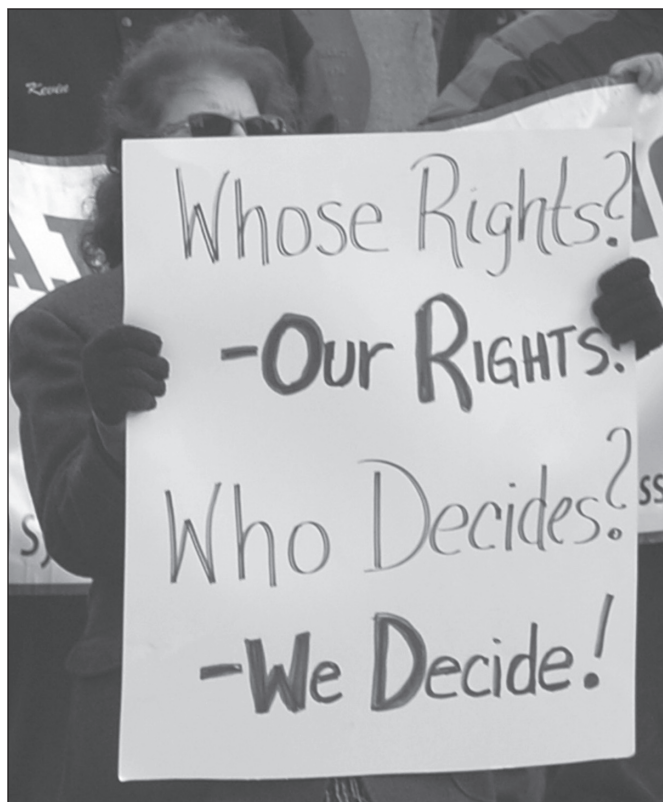 Keven
Whose Rights?
-Our RIGHTS.
Who Decides?
-We Decide!